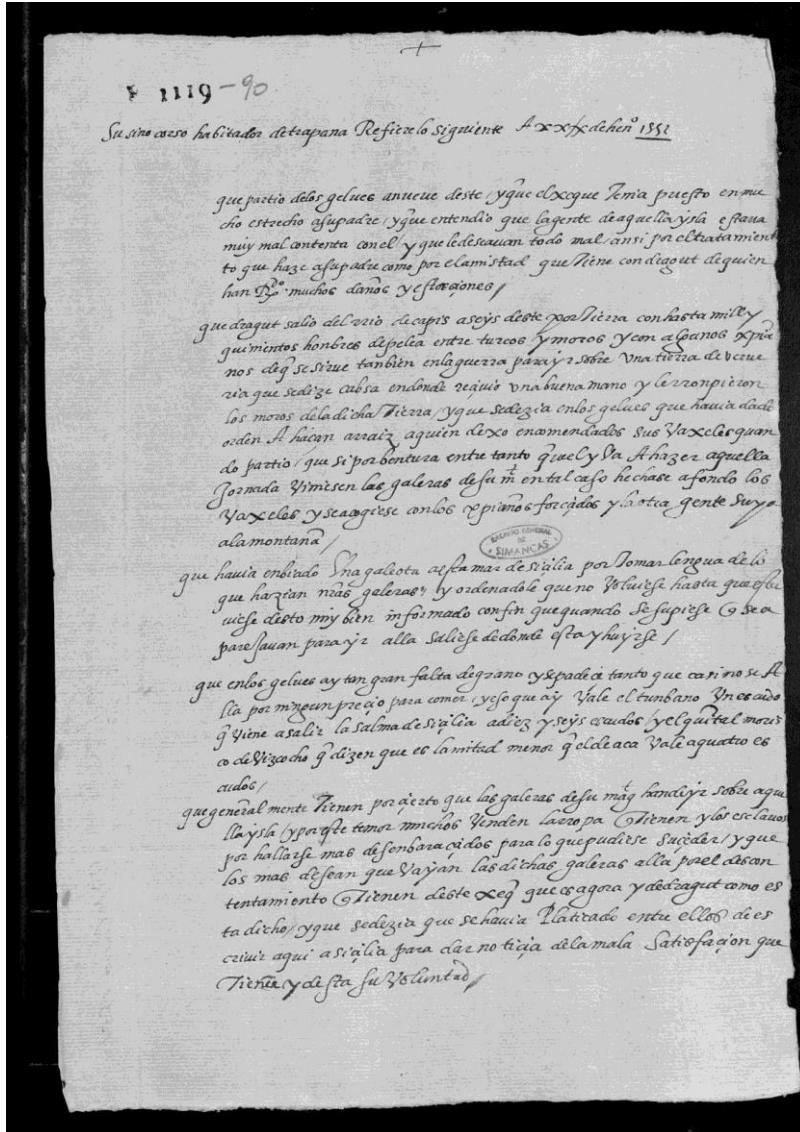 +
E 1119-90
Susino corso habitador de trapana Refiere lo siguiente A xxix de hen° 1551
que partio de los gelves a nueve deste / y q̃ el xeque Tenia puesto en mu
cho estrecho a su padre / y q̃ entendio que la gente de aquella ysla estava
muy mal contenta con el / y que le deseavan todo mal / ansi por el tratamien
to que haze a su padre como por el amistad que Tiene con dragut de quien
han R̃do muchos daños y estorçiones /
que dragut salio del rrio de capis a seys deste por Tierra con hasta mill y
quinientos honbres de pelea entre turcos y moros y con algunos xp̃ia
nos de q̃ se sirve tanbien en la guerra para yr sobre Una tierra de verve
ria que se dize cabsa en donde reçivio vna buena mano y le rronpieron
los moros de la dicha Tierra / y que se dezia en los gelves que havia dado
orden A haçan arraiz a quien dexo encomendados sus Vaxeles quan
do partio / que si por bentura entre tanto q̃ el yva A hazer aquella
Jornada Viniesen las galeras de su m.t en tal caso hechase a fondo los
Vaxeles y se acogiese con los xp̃ianos forçados y la otra gente suya
a la montaña /
ARCHIVO GENERAL
DE
SIMANCAS
que havia enbiado Una galeota a esta mar de siçilia por Tomar lengua de lo
que hazian nr̃as galeras / y ordenadole que no Volviese hasta que estu
viese desto muy bien informado con fin que quando se supiese q̃ se a
parejavan para yr alla saliese de donde esta y huyrse /
que en los gelves ay tan gran falta de grano y se padeçe tanto que casi no se A
lla por ningun preçio para comer / y ese que ay Vale el tunbano Un escudo
q̃ Viene a salir la salma de siçilia a diez y seys escudos / y el quintal moris
co de Vizcocho q̃ dizen que es la mitad menor q̃ el de aca Vale a quatro es
cudos /
que general mente Tienen por çierto que las galeras de su mag.t han de yr sobre aque
lla ysla / y por este temor muchos Venden la rropa q̃ Tienen y los esclavos
por hallarse mas desenbaraçados para lo que pudiese suçeder / y que
los mas desean que Vayan las dichas galeras alla por el descon
tentamiento q̃ Tienen deste xeq̃ que es agora y de dragut como es
ta dicho / y que se dezia que se havia Platicado entre ellos de es
crivir aqui a siçilia para dar notiçia de la mala Satisfaçion que
Tienen y desta su Voluntad /